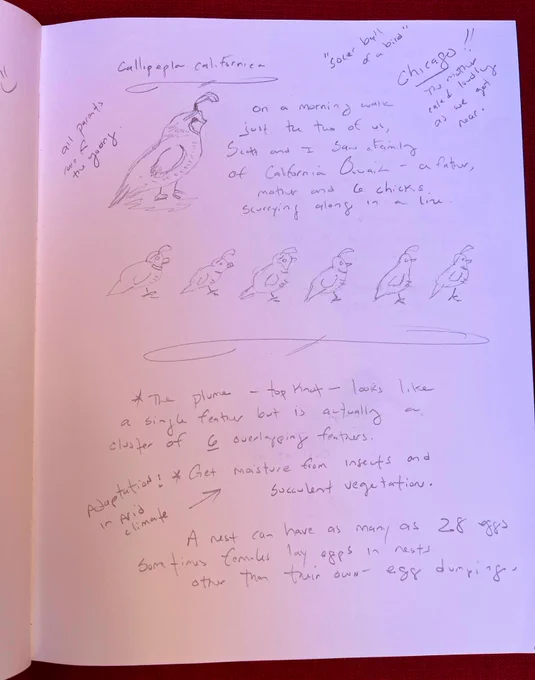 Callipepla californica
"Soccer ball
of a bird"
Chicago!!
The mother
called loudly
as we got
near.
all parents
the young
on a morning walk
just the two of us,
Scott and I saw a family
of California Quail - a father,
mother and 6 chicks
scurrying along in a line.
* The plume - top knot - looks like
a single feather but is actually a
cluster of 6 overlapping feathers.
Adaptation!
in Arid
climate
* Get moisture from insects and
succulent vegetation.
A nest can have as many as 28 eggs
Sometimes females lay eggs in nests
other than their own - egg dumping.